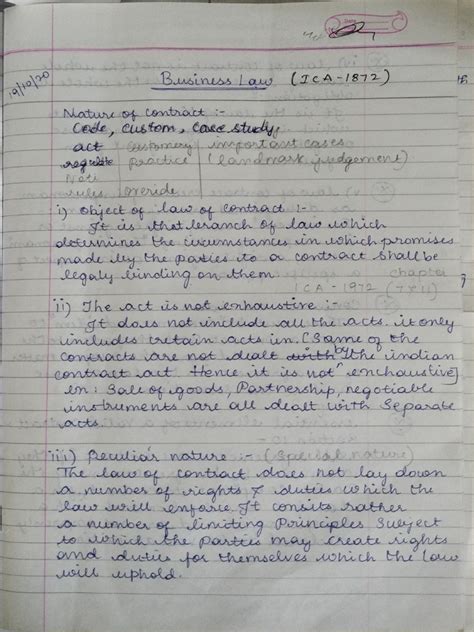 19/10/20
Business Law (ICA-1872)
Nature of contract :-
Code, Custom, Case study,
act customery important cases
regulate practice (landmark judgement)
override
i) Object of law of contract :-
It is that branch of law which
determines the circumstances in which promises
made by the parties to a contract shall be
legaly binding on them. chapter
ICA-1872
ii) The act is not exhaustive :-
It does not include all the acts. it only
includes certain acts in. [Some of the
contracts are not dealt with by the indian
contract act. Hence it is not exhaustive]
en: Sale of goods, Partnership, negotiable
instruments are all dealt with Separate
acts.
iii) Peculiar nature :- (Special nature)
The law of contract does not lay down
a number of rights & duties which the
law will enforce. It consits rather
a number of limiting Principles subject
to which the parties may create rights
and duties for themselves which the law
will uphold.